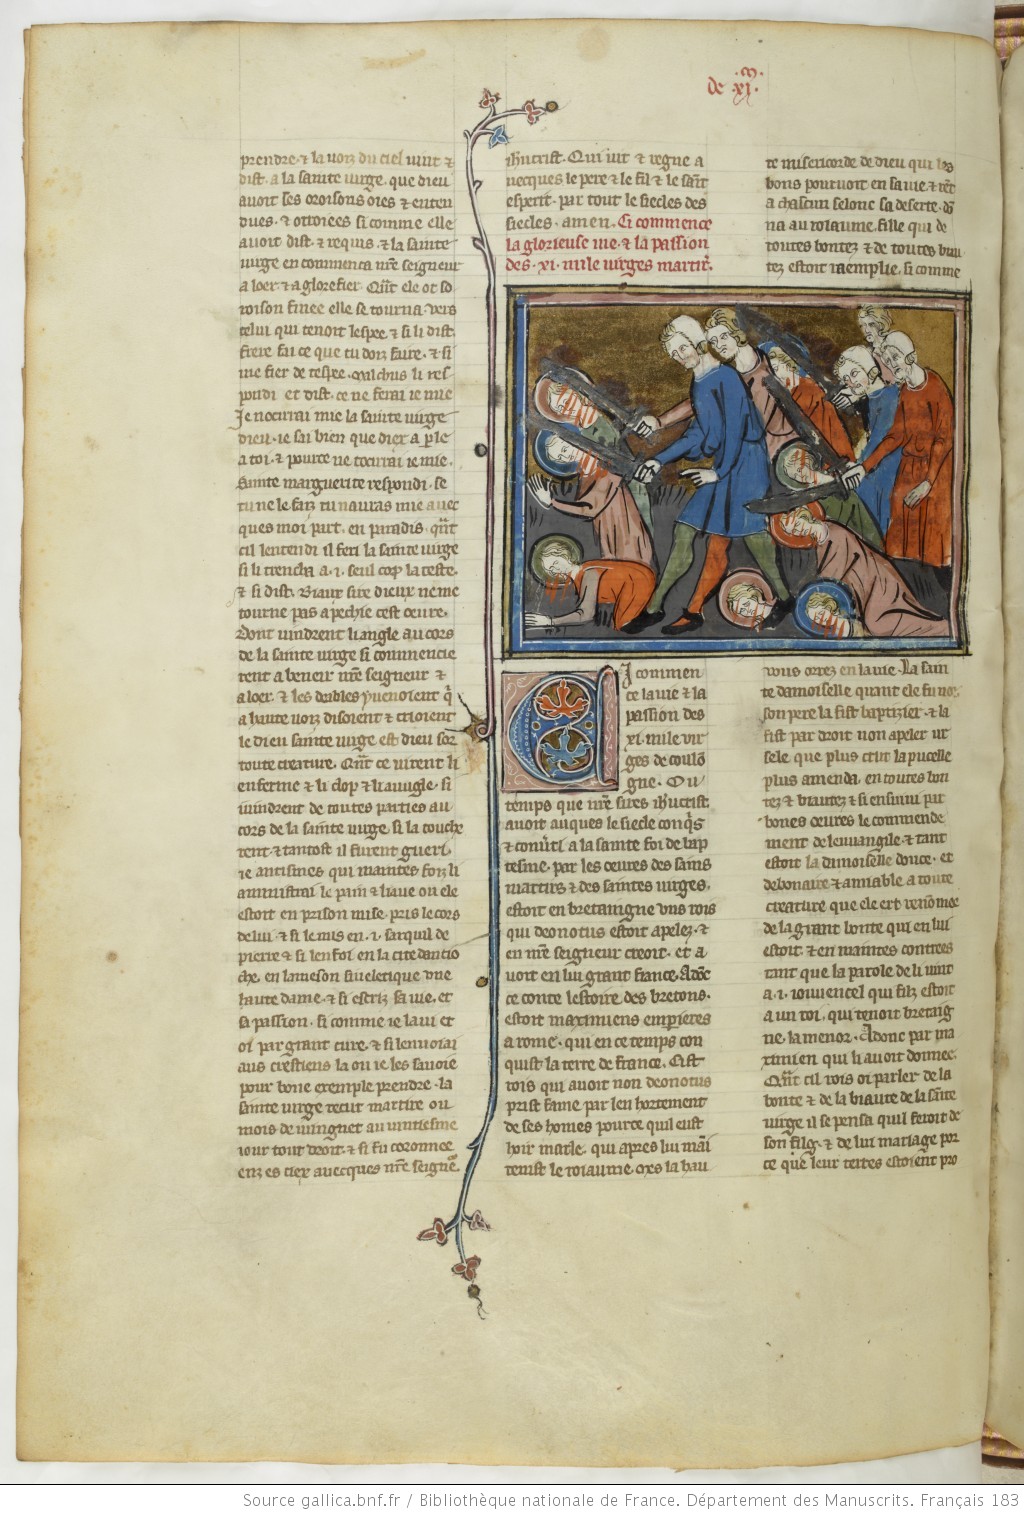 de .xi.
prendre. ⁊ la uoiz du ciel uint ⁊
dist. a la sainte uirge. que dieu
auoit ses oroisons oies ⁊ enten
dues. ⁊ otroiees si comme elle
auoit dist. ⁊ requis. ⁊ la sainte
uirge en commenca nr̄e seigneur
a loer. ⁊ a glorefier. Qūt ele ot so
roison finee elle se tourna uers
celui qui tenoit lespee. ⁊ si li dist.
frere fai ce que tu doiz faire. ⁊ si
me fier de tespee. malchus li res
pondi et dist. ce ne ferai ie mie
Je nocirrai mie la sainte uirge
dieu. ie sai bien que diex a ple
a toi. ⁊ pource ne tocirrai ie mie.
Sainte marguerite respondi. se
tu ne le faiz tu nauras mie auec
ques moi part. en paradis. qūt
cil lentendi il feri la sainte uirge
si li trencha a .i. seul cop la teste.
⁊ si dist. Biaus sire dieux ne me
tourne pas a pechie cest oeure.
Dont uindrent li angle au cors
de la sainte uirge si commencie
rent a beneir nr̄e seigneur ⁊
a loer. ⁊ les deables y uenoient q̄
a haute uoiz disoient ⁊ crioient
le dieu sainte uirge est dieu sor
toute creature. Qūt ce uirent li
enferme ⁊ li clop ⁊ li auugle. si
uindrent de toutes parties au
cors de la sainte uirge. si la touche
rent. ⁊ tantost il furent gueri.
ie antismes qui maintes foiz li
amnistrai le pain ⁊ liaue ou ele
estoit en prison mise. pris le cors
de lui. ⁊ si le mis en .i. sarquil de
pierre ⁊ si len foi en la cite dantio
che. en la meson sineletique une
haute dame. ⁊ si escriz sa uie. et
sa passion. si comme ie la ui et
oi par grant cure. ⁊ si lenuoiai
aus crestiens la ou ie les sauoie
pour bone exemple prendre. la
sainte uirge recut martire ou
mois de iuingnet au uintisme
iour tout droit. ⁊ si fu coronnee
enz es ciex auecques nr̄e seignor.
ihūcrist. Qui uit ⁊ regne a
uecques le pere ⁊ le fil ⁊ le saīt
esperit. par tout le siecles des
siecles. amen. Ci commence
la glorieuse uie. ⁊ la passion
des .xi. mile uirges martirs.
Ci commen
ce la uie ⁊ la
passion des
.xi. mile uir
ges de coulō
gne. Ou
temps que nr̄e sires ih̄ucrist
auoit auques le siecle conq̄s
⁊ conuti a la sainte foi de bap
tesme. par les oeures des sains
martirs ⁊ des saintes uirges.
estoit en bretaingne uns rois
qui deonotus estoit apelez. ⁊
en nr̄e seigneur creoit. et a
uoit en lui grant france. Adōc
ce conte lestoire des bretons.
estoit maximiens emperieres
a rome. qui en ce temps con
quist la terre de france. Cist
rois qui auoit non deonotus
prist fame par len hortement
de ses homes pource quil eust
hoir masle. qui apres lui maī
tenist le roiaume. mes la hau
te misericorde de dieu qui les
bons pouruoit en sa uie ⁊ rēt
a chascun selonc sa deserte. dō
na au roiaume. fille qui de
toutes bontez ⁊ de toutes biau
tez estoit raemplie. si comme
uous orrez en la uie. La sain
te damoiselle quant ele fu nee.
son pere la fist baptizier. ⁊ la
fist par droit non apeler ur
sele. que plus crut la pucelle
plus amenda. en toutes bon
tez ⁊ biautez ⁊ si ensiuui par
bones oeures le commende
ment de leuuangile. ⁊ tant
estoit la dimoiselle douce. et
debonaire ⁊ amiable a toute
creature que ele ert renōmee
de la grant bonte qui en lui
estoit. ⁊ en maintes contrees
tant que la parole de li uint
a .i. iouuencel qui filz estoit
a un roi. qui tenoit bretaig
ne. la menor. Adonc par ma
ximien qui li auoit donnee.
Qūt cil rois oi parler de la
bonte ⁊ de la biaute de la sāīte
uirge il se pensa quil feroit de
son filz. ⁊ de lui mariage por
ce que leur terres estoient pro
Source gallica.bnf.fr / Bibliothèque nationale de France. Département des Manuscrits. Français 183